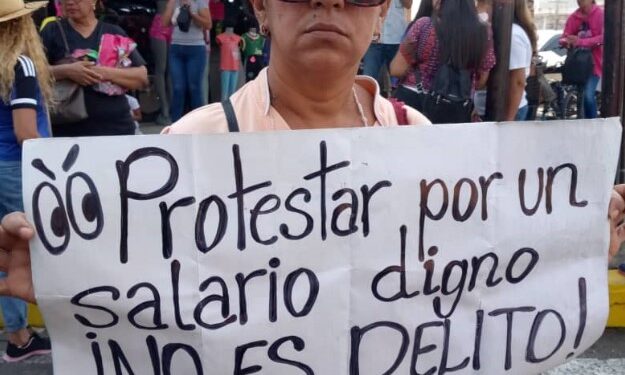 Protestar por un
salario digno
¡NO ES DELITO!